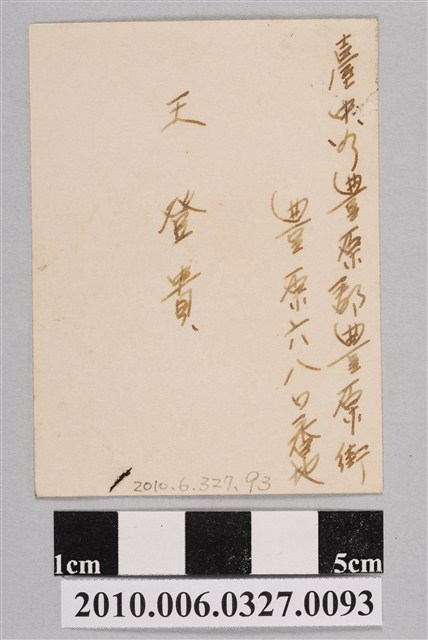 臺中州豐原郡豐原街
豐原六八〇番地
王登貴
2010.6.327.93
1cm 5cm
2010.006.0327.0093